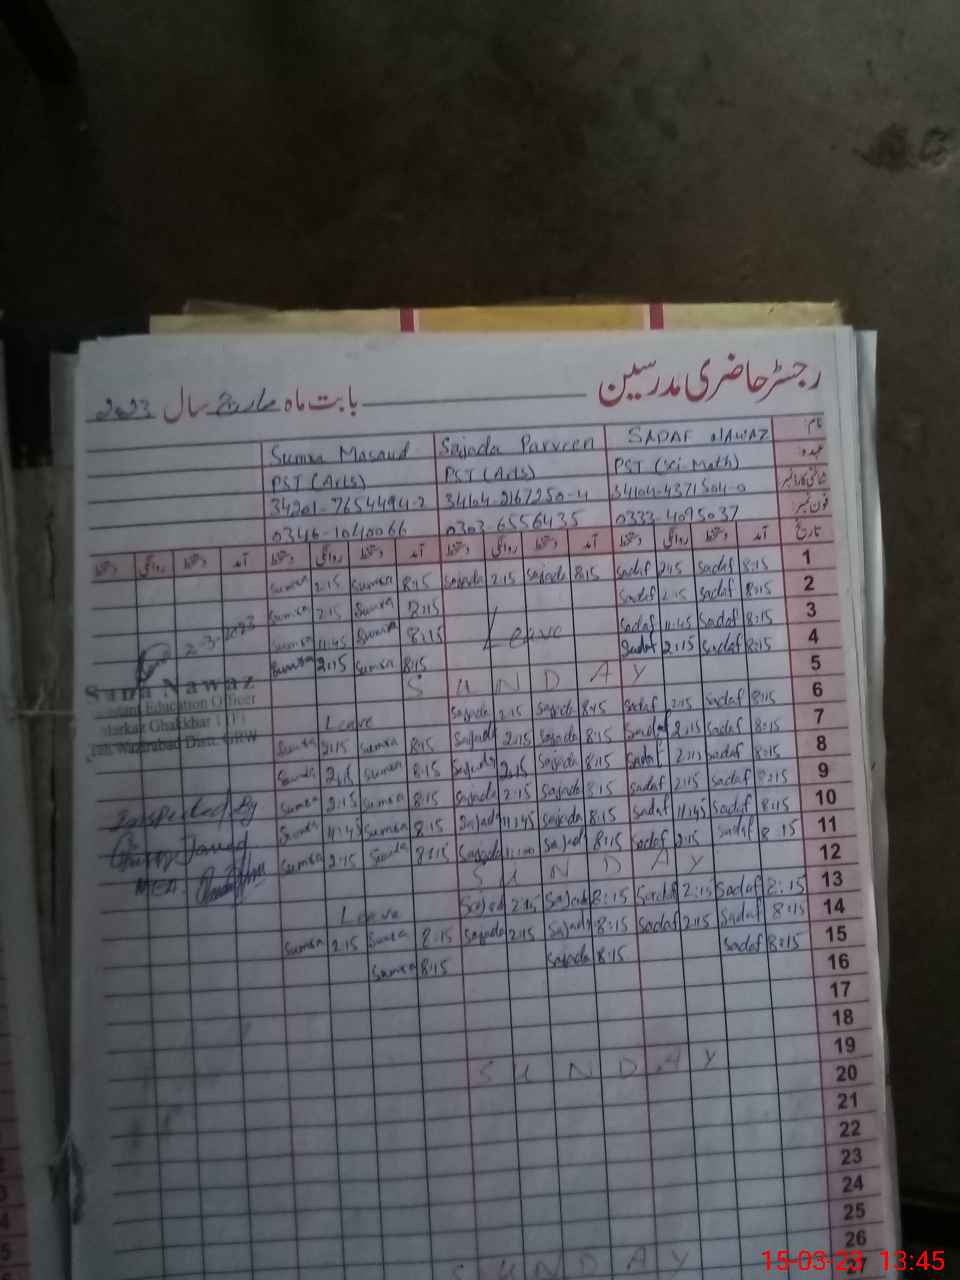 رجسٹر حاضری مدرسین بابت ماہ مارچ سال 2023
نام SADAF NAWAZ Sajada Parveen Sumra Masaud
عہدہ PST (Sci-Math) PST (Arts) PST (Arts)
شناختی کارڈ نمبر 34104-4371504-0 34104-2167250-4 34201-7654494-2
فون نمبر 0333-4095037 0303-6556435 0346-1040066
تاریخ آمد دستخط روانگی دستخط آمد دستخط روانگی دستخط آمد دستخط روانگی دستخط آمد دستخط روانگی دستخط
1 8:15 Sadaf 2:15 Sadaf 8:15 Sajada 2:15 Sajada 8:15 Sumra 2:15 Sumra
2 8:15 Sadaf 2:15 Sadaf 8:15 Sumra 2:15 Sumra
3 8:15 Sadaf 11:45 Sadaf Leave 8:15 Sumra 11:45 Sumra
4 8:15 Sadaf 2:15 Sadaf 8:15 Sumra 2:15 Sumra
2-3-2023
5 SUNDAY
Nawaz
Education Officer
Markaz Ghakhar
6 8:15 Sadaf 2:15 Sadaf 8:15 Sajada 2:15 Sajada Leave
7 8:15 Sadaf 2:15 Sadaf 8:15 Sajada 2:15 Sajada 8:15 Sumra 2:15 Sumra
8 8:15 Sadaf 2:15 Sadaf 8:15 Sajada 2:15 Sajada 8:15 Sumra Sumra
9 8:15 Sadaf 2:15 Sadaf 8:15 Sajada 2:15 Sajada 8:15 Sumra 2:15 Sumra
Inspected By
10 8:15 Sadaf 11:45 Sadaf 8:15 Sajada 11:45 Sajada 8:15 Sumra 11:45 Sumra
11 8:15 Sadaf 2:15 Sadaf 8:15 Sajada Sajada 8:15 Sumra 2:15 Sumra
MEA
12 SUNDAY
13 8:15 Sadaf 2:15 Sadaf 8:15 Sajada 2:15 Sajada Leave
14 8:15 Sadaf 2:15 Sadaf 8:15 Sajada 2:15 Sajada 8:15 Sumra 2:15 Sumra
15 8:15 Sadaf 8:15 Sajada 8:15 Sumra
16
17
18
19 SUNDAY
20
21
22
23
24
25
26 SUNDAY
15-03-23 13:45